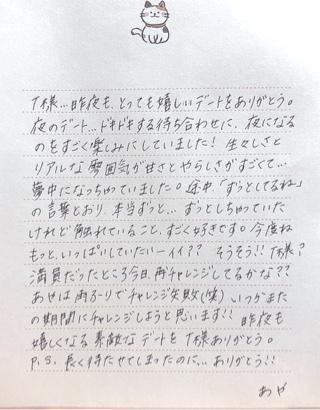 T様…昨夜も、とっても嬉しいデートをありがとう。
夜のデート…ドキドキする待ち合わせに、夜になる
のをすごく楽しみにしていました！生々しさと
リアルな雰囲気が甘さとやらしさがすごくて…
夢中になっちゃていました。途中「ずっとしてるね」
の言葉とおり、本当ずっと…ずっとしちゃていた
けれど触れていること、すごく好きです。今度ね
もっと、いっぱいしていたいーィィ？？ そうそう!! T様？
満員だったところ今日、再チャレンジしてるかな？？
あやは でチャレンジ失敗(笑) いつかまた
の期間にチャレンジしようと思います!! 昨夜も
嬉しくなる素敵なデートを T様ありがとう。
P.S. 長く待たせてしまったのに、…ありがとう!!
あや